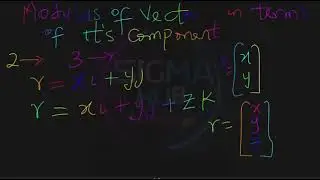 Modulus of Vect in term
of It's component
2 → 3 →
r = xi + yj = [x y]
r = xi + yj + zK
r = [x y z]
SIGMA